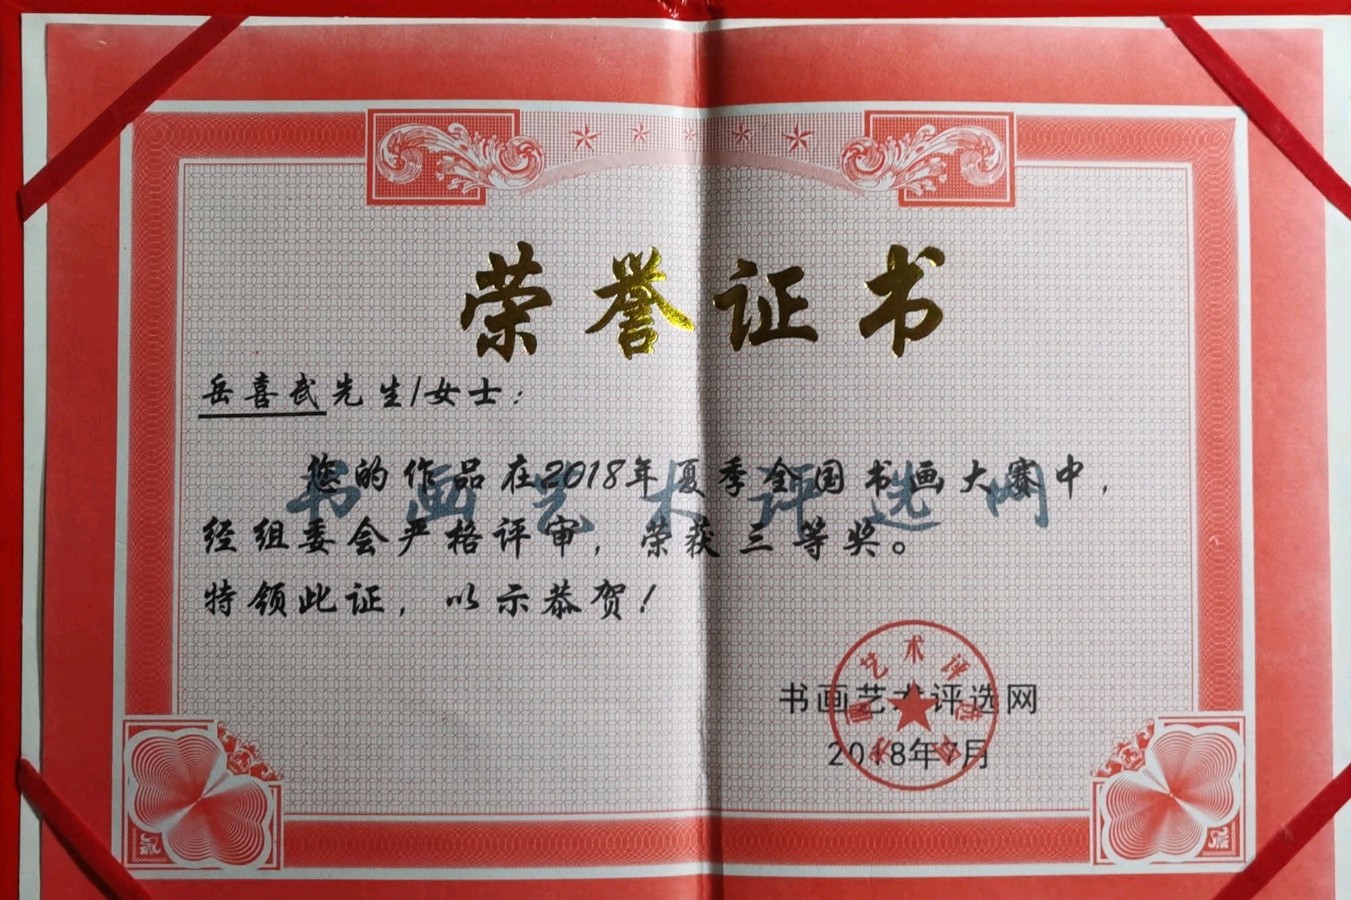 荣誉证书
岳喜武先生/女士：
您的作品在2018年夏季全国书画大赛中，
书画艺术评选网
经组委会严格评审，荣获三等奖。
特领此证，以示恭贺！
书画艺术评选网
2018年7月
书画艺术评选